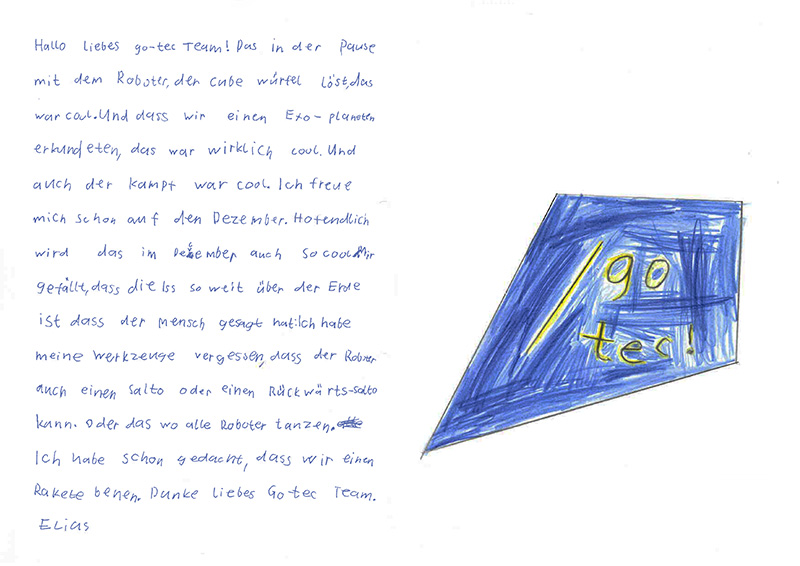 Hallo liebes go-tec Team! Das in der Pause
mit dem Roboter, der cube würfel löst, das
war cool. Und dass wir einen Exo-planeten
erkundeten, das war wirklich cool. Und
auch der kampf war cool. Ich freue
mich schon auf den Dezember. Hofendlich
wird das im Dezember auch so cool. Mir
gefällt, dass die Iss so weit über der Erde
ist dass der mensch gesagt hat: Ich habe
meine Werkzeuge vergessen, dass der Roboter
auch einen Salto oder einen Rückwärts-salto
kann. Oder das wo alle Roboter tanzen.
Ich habe schon gedacht, dass wir einen
Rakete benen. Danke liebes Go-tec Team.
Elias
/go
tec!